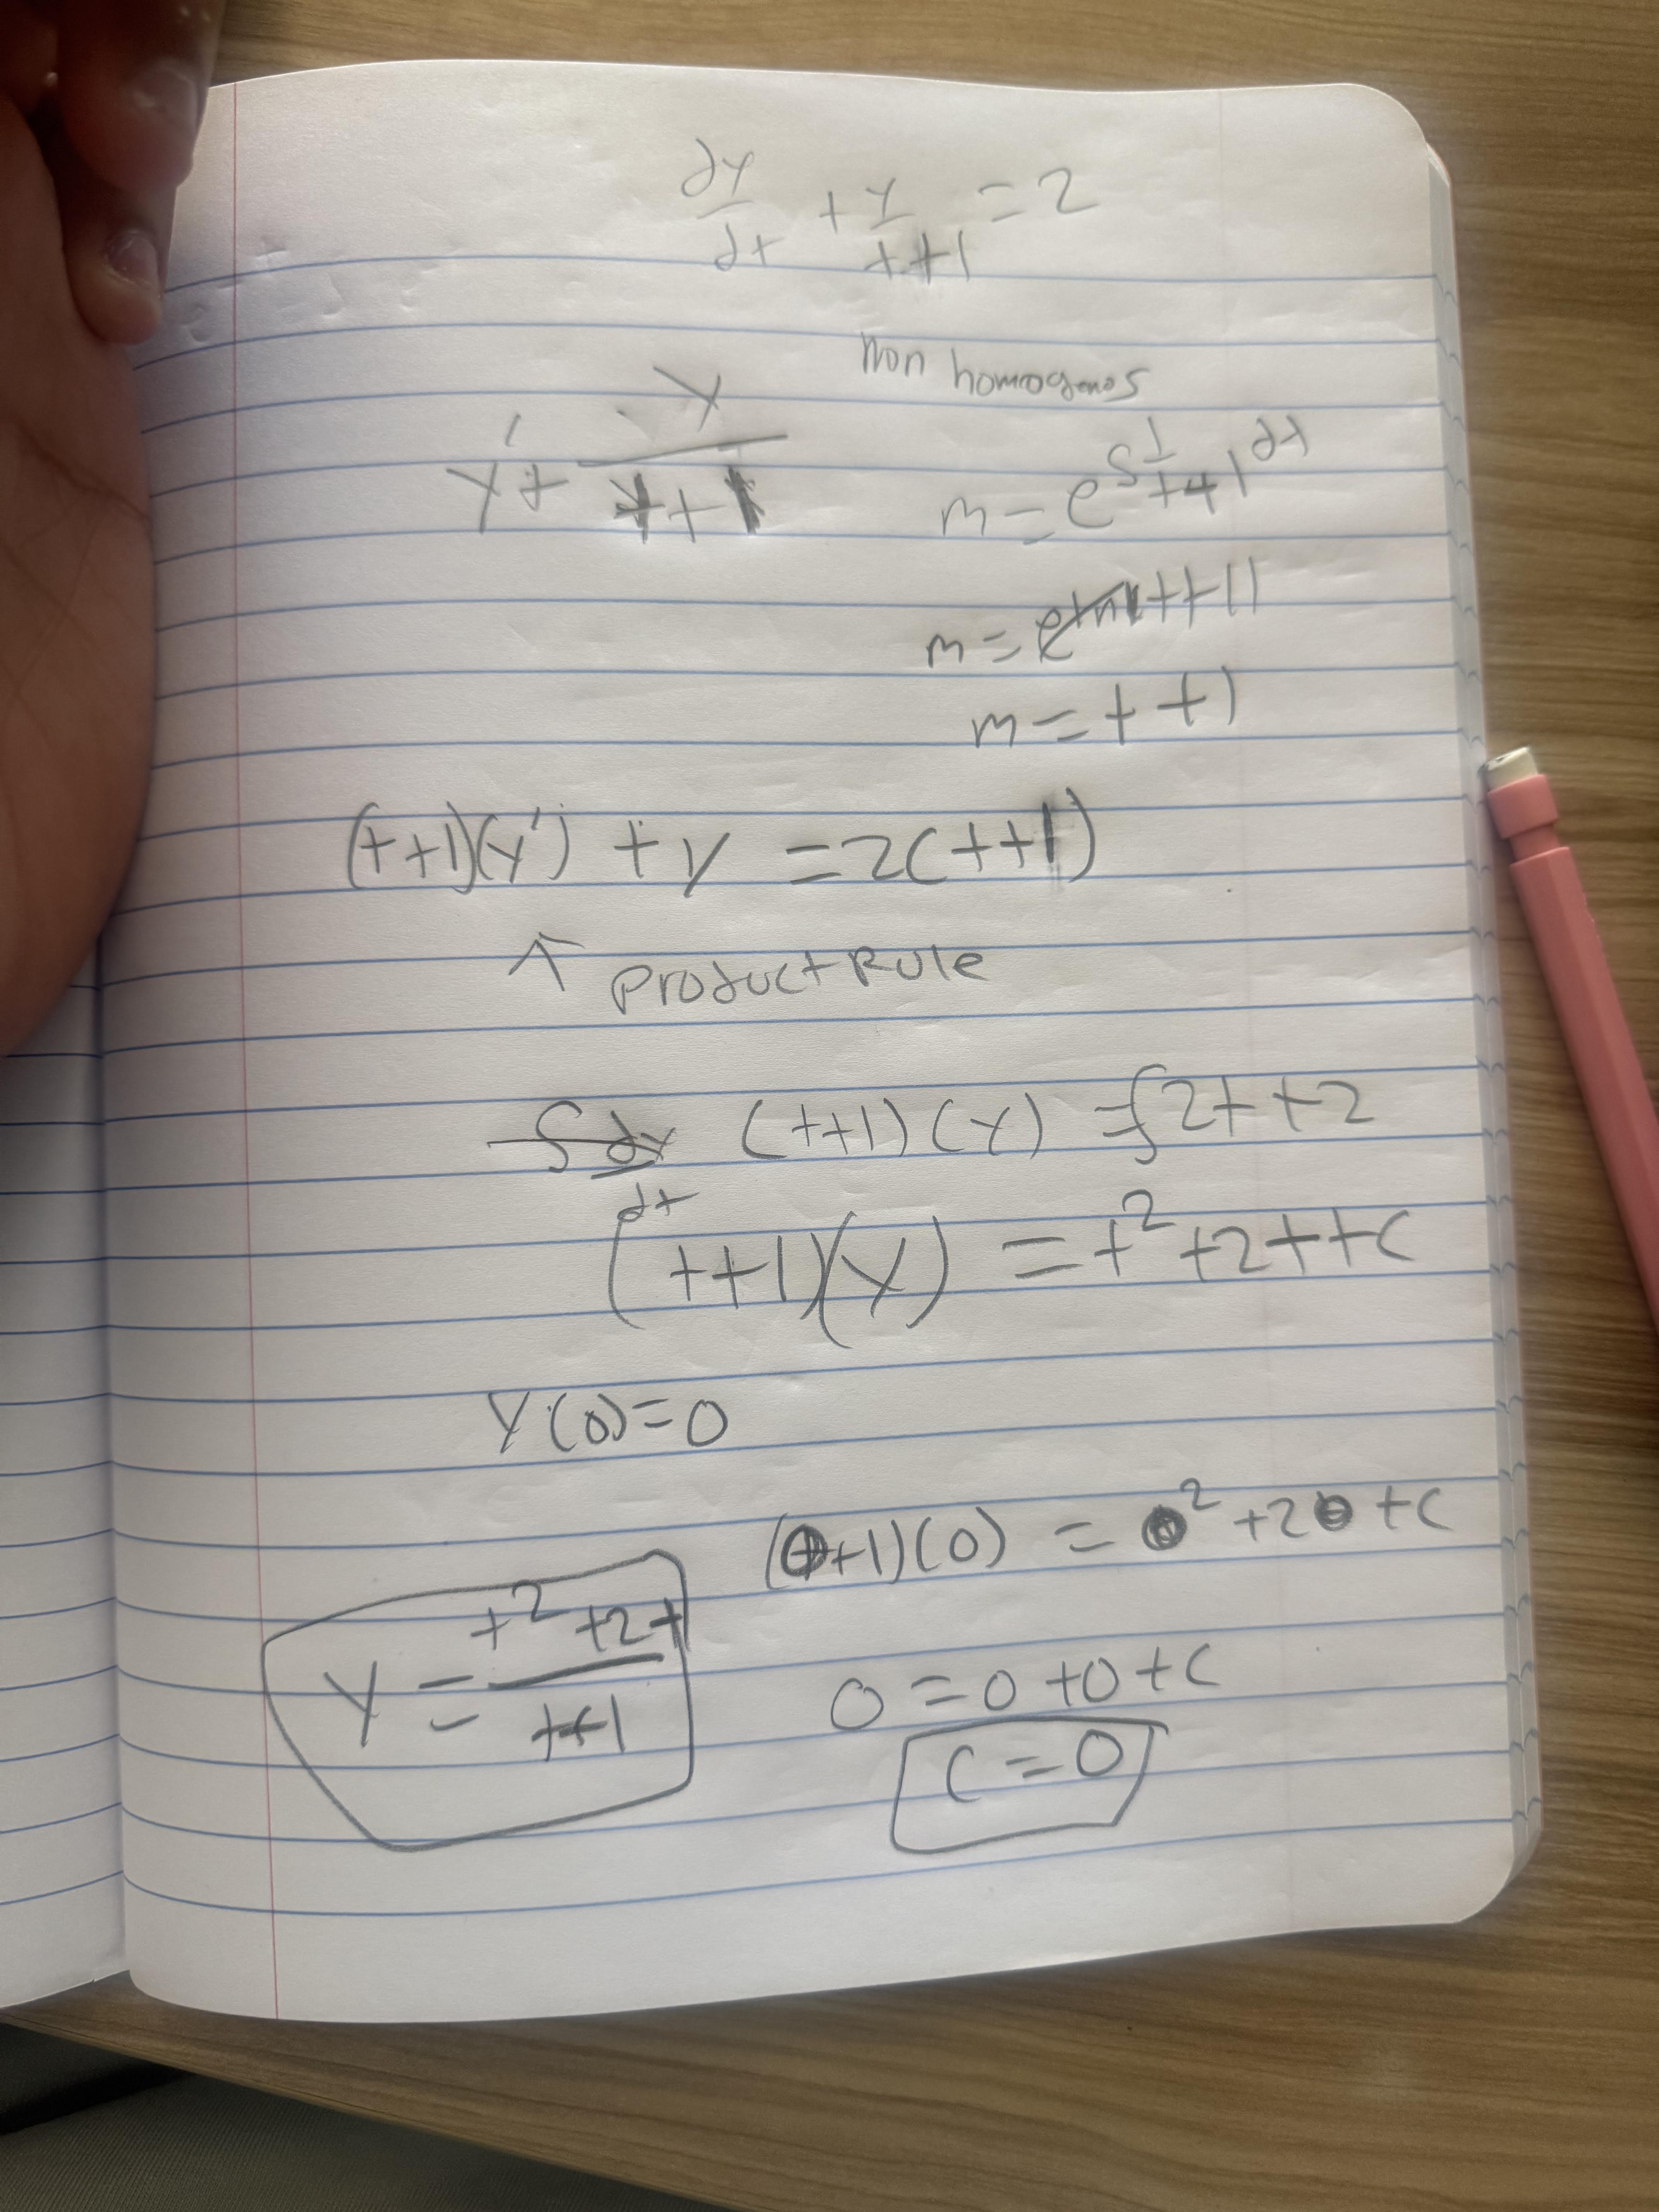 dy/dt + y/t+1 = 2
non homogenos
y' + y/t+1
m = e^∫1/t+1 dt
m = e^ln|t+1|
m = t+1
(t+1)(y') + y = 2(t+1)
↑ Product Rule
∫dy/dt (t+1)(y) = ∫2t+2
(t+1)(y) = t²+2t+c
y(0)=0
(0+1)(0) = 0²+20+c
y = t²+2t/t+1
0=0+0+c
c=0